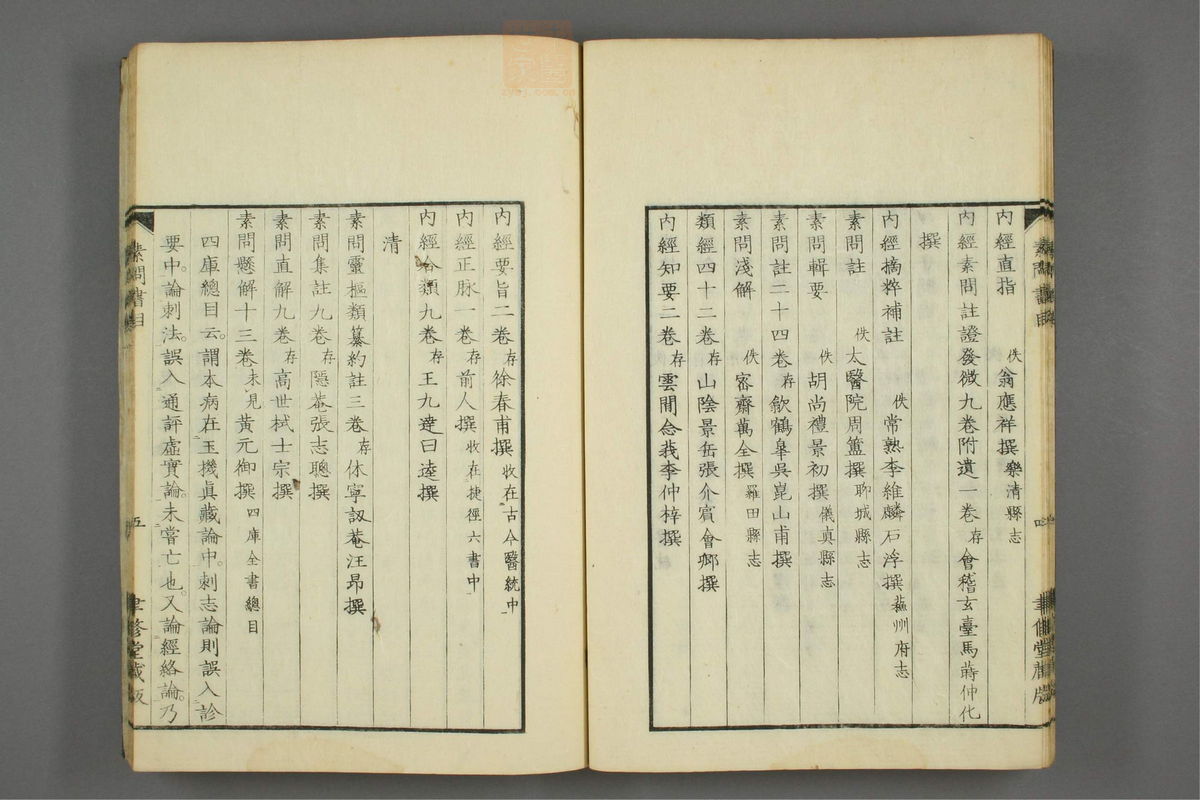 內經直指 佚 翁應祥撰 樂清縣志
內經素問註證發微九卷附遺一卷 存 會稽玄臺馬蒔仲化
撰
內經摘粹補註 佚 常熟李維麟石浮撰 蘇州府志
素問註 佚 太醫院周簠撰 聊城縣志
素問輯要 佚 胡尚禮景初撰 儀真縣志
素問註二十四卷 存 歙鶴皋吳崑山甫撰
素問淺解 佚 密齋萬全撰 羅田縣志
類經四十二卷 存 山陰景岳張介賓會卿撰
內經知要二卷 存 雲間念莪李仲梓撰
內經要旨二卷 存 徐春甫撰 收在古今醫統中
內經正脉一卷 存 前人撰 收在捷徑六書中
內經合類九卷 存 王九達曰逵撰
清
素問靈樞類纂約註三卷 存 休寧訒菴汪昂撰
素問集註九卷 存 隱菴張志聰撰
素問直解九卷 存 高世栻士宗撰
素問懸解十三卷 未見 黃元御撰 四庫全書總目
四庫總目云。謂本病在玉機眞藏論中。刺志論則誤入診
要中。論刺法。誤入通評虛實論。未嘗亡也。又論經絡論。乃
素問書目
五
聿修堂藏版
素問書目
四
聿修堂藏版
zysj.com.cn